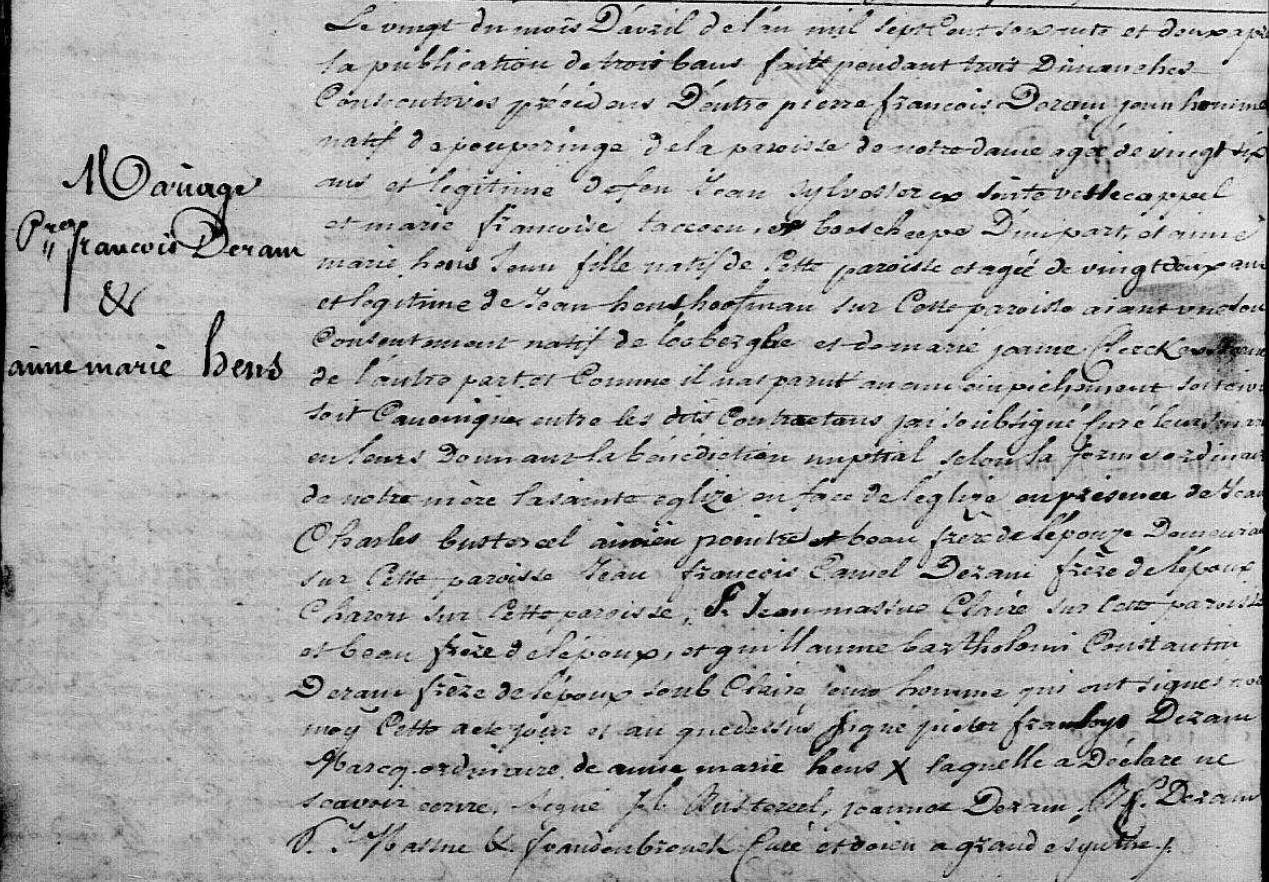 Le vingt du mois Davril de lan mil sept Cent soixante et deux apre
la publication de trois bans fait pendant trois Dimanches
Consecutives précédens Dentre pierre francois Deram jeun homme
natif de pouperinge de la paroisse de notre dame agée de vingt six
ans et legitime de feu Jean Sylvester ex
et marie francoise tacoen, boescheepe D'une part, et anne
marie hens Jeun fille natif de Cette paroisse et agée de vingt deux ans
et legitime de Jean hens hoofman sur Cette paroisse aiant
Consentement natif de Looberghe et de marie joanne Clerck
de l'autre part et Comme il nas parut aucun empichement soit civ
soit Canonique entre les dits Contractans jai soubsigné Curé leurs
en leurs Donnant la bénédiction nuptial selon la forme ordinair
de notre mère la sainte eglize en face de leglize en présence de Jean
Charles bustereel ancien peintre et beau frère de lépouze Demeuran
sur Cette paroisse Jean francois Camel Deram frère de lépoux
Charon sur Cette paroisse, Jean massne Claire sur Cette paroisse
et beau frère de lépoux, et guillaume bartholomi Constantin
Deram frère de lépoux soub Claire jeune homme qui ont signés
moy Cette acte jour et an quedessus signé pieter franboys Deram
Marcq ordinaire de anne marie hens X laquelle a Déclaré ne
scavoir ecrire, signé Bustereel, joannes Deram, Deram
P. J Masne & f vandenbrouck Curé et doien a grande synthe /.
Mariage
Pre francois Deram
&
anne marie hens